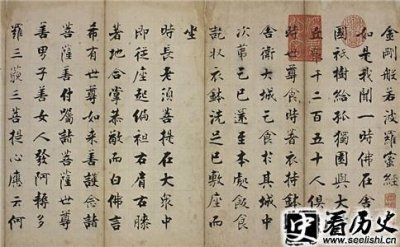 金剛般若波羅蜜經
如是我聞一時佛在
國祇樹給孤獨園與大
丘眾千二百五十人俱
時世尊食時著衣持鉢
舍衛大城乞食於其城中
次第乞已還至本處飯食
訖收衣鉢洗足已敷座而
坐
時長老須菩提在大眾中
即從座起偏袒右肩右膝
著地合掌恭敬而白佛言
希有世尊如來善護念諸
菩薩善付囑諸菩薩世尊
善男子善女人發阿耨多
羅三藐三菩提心應云何
看历史
www.seelishi.cn